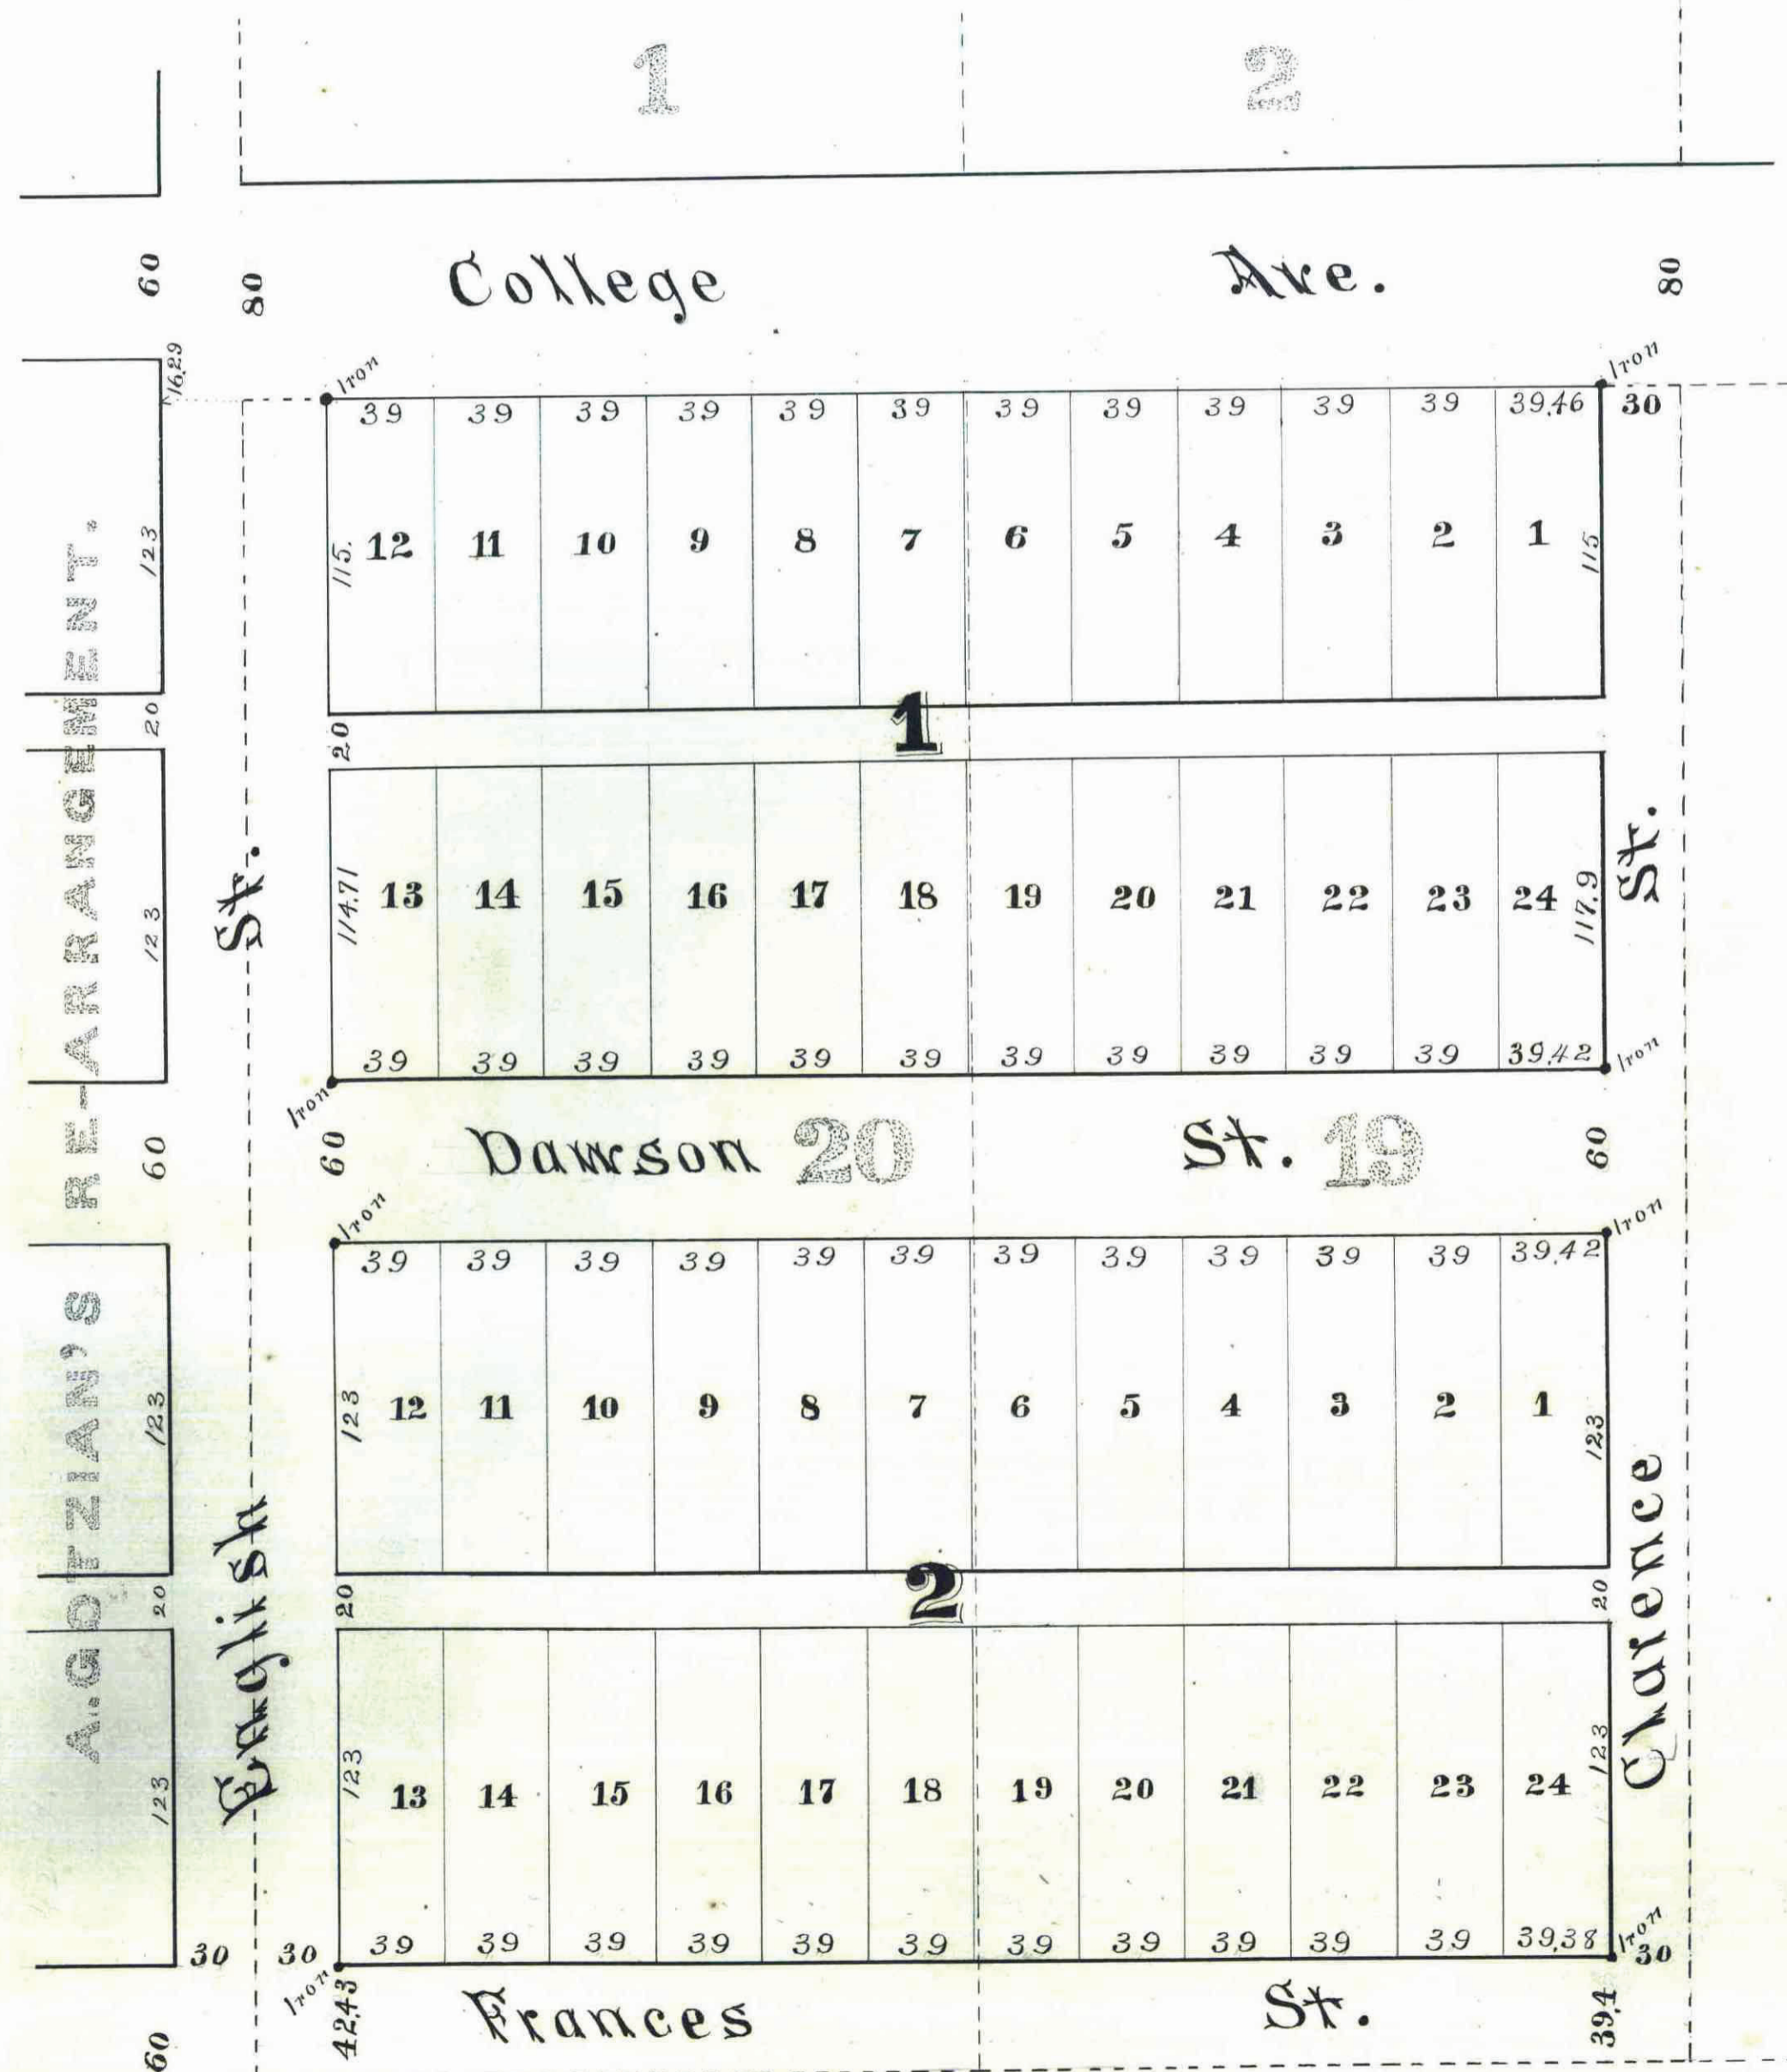 1 2
60 80 College Ave. 80
16.29
Iron Iron
39 39 39 39 39 39 39 39 39 39 39 39.46 30
123 115. 12 11 10 9 8 7 6 5 4 3 2 1 115
20 20 1
123 114.71 13 14 15 16 17 18 19 20 21 22 23 24 117.9
39 39 39 39 39 39 39 39 39 39 39 39.42
Iron Iron
60 60 Dawson 20 St. 19 60
Iron Iron
39 39 39 39 39 39 39 39 39 39 39 39.42
123 123 12 11 10 9 8 7 6 5 4 3 2 1 123
20 20 2 20
123 123 13 14 15 16 17 18 19 20 21 22 23 24 123
39 39 39 39 39 39 39 39 39 39 39 39.38
30 30 Iron Iron 30
60 42.43 Frances St. 39.4
A. GOTZIAN'S RE-ARRANGEMENT.
English St.
Clarence St.